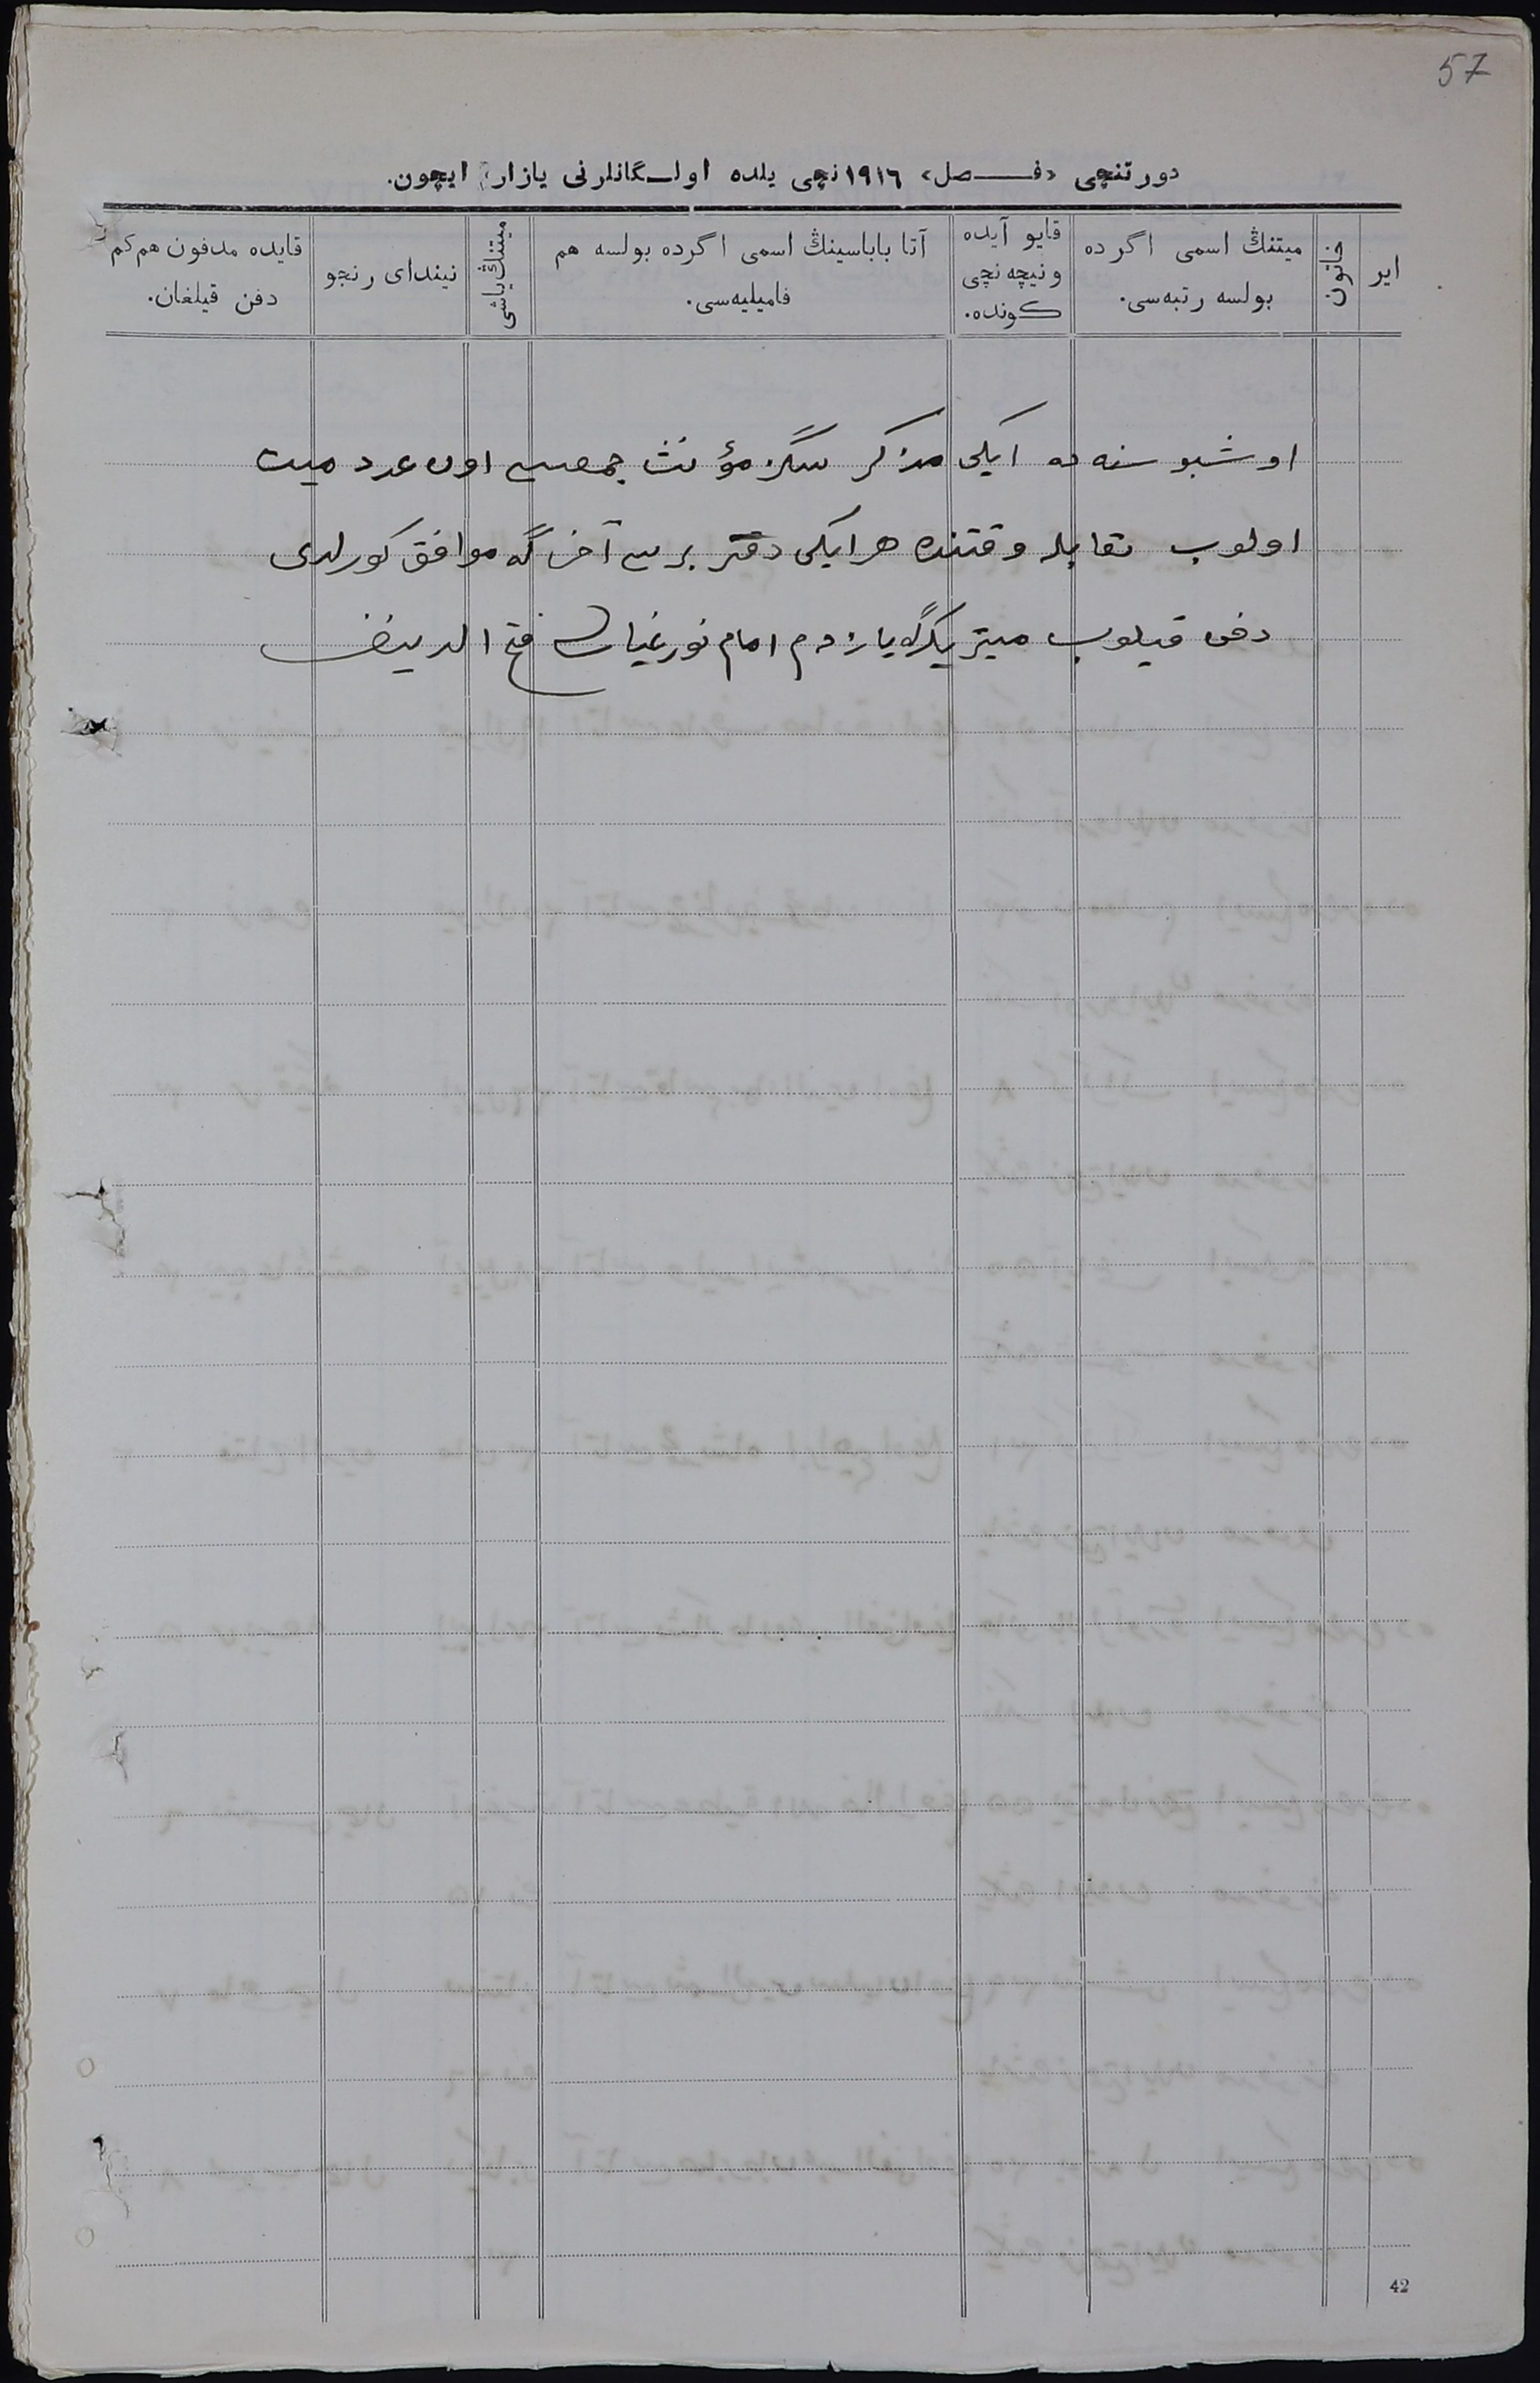 57
دورتنچی «فـصل» ١٩١٦نچی یلده اولـگانلرنی یازار ایچون.
ایر
خاتون
میتنڭ اسمی اگرده
بولسه رتبه‌سی.
قایو آیده
ونیچه نچی
کونده.
آتا باباسینڭ اسمی اگرده بولسه هم
فامیلیه‌سی.
میتنڭ یاشی
نیندای رنجو
قایده مدفون هم کم
دفن قیلغان.
اوشبو سنه ده ایکی مذکر سگز مؤنث جمعسی اون عدد میت
اولوب تقابله وقتنده هر ایکی دفتر برسی آخرگه موافق کورلدی
دفن قیلوب میتریکگه یازدم امام نورغیان فتح الدینف
42